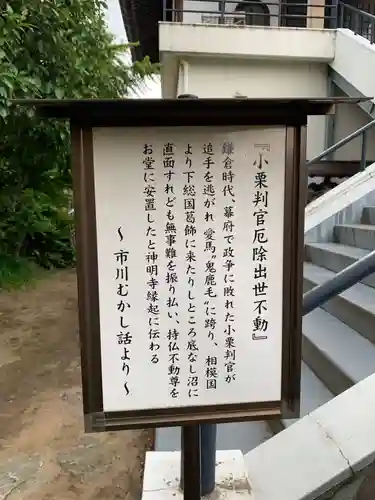 『小栗判官厄除出世不動』
鎌倉時代、幕府で政争に敗れた小栗判官が
追手を逃がれ愛馬“鬼鹿毛”に跨り、相模国
より下総国葛飾に来たりしところ底なし沼に
直面すれども無事難を振り払い、持仏不動尊を
お堂に安置したと神明寺縁起に伝わる
～市川むかし話より～